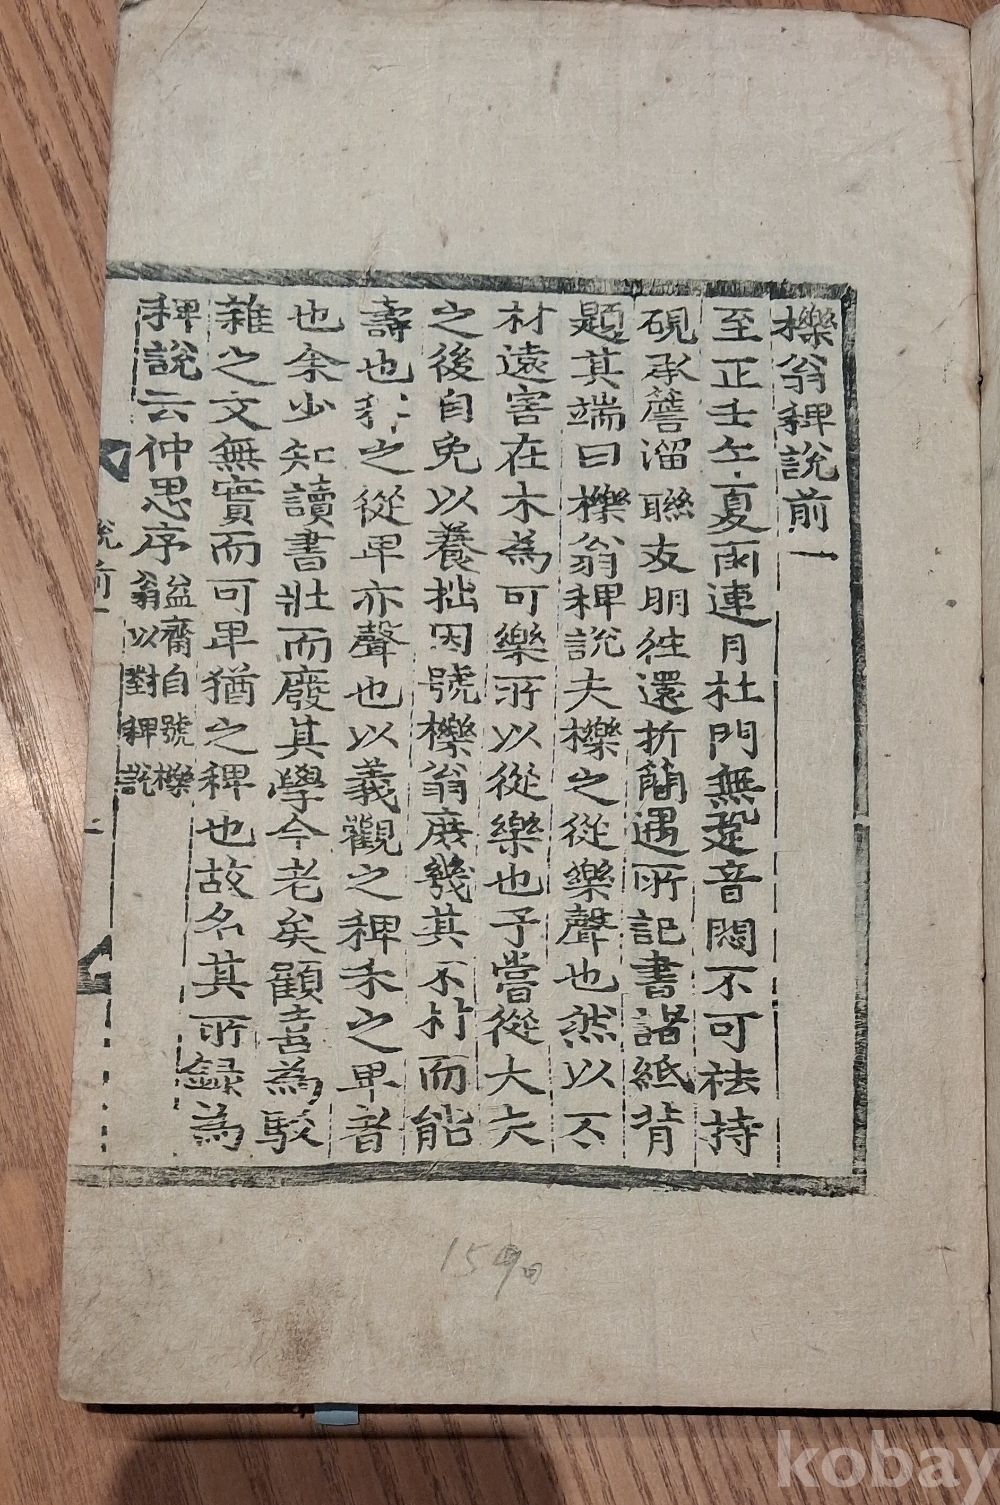 櫟翁稗說前一
至正壬午夏雨連月杜門無跫音悶不可袪持
硯承簷溜聯友朋往還折簡遇所記書諸紙背
題其端曰櫟翁稗說夫櫟之從樂聲也然以不
材遠害在木為可樂所以從樂也予嘗從大夫
之後自免以養拙因號櫟翁庶幾其不材而能
壽也稗之從卑亦聲也以義觀之稗禾之卑者
也余少知讀書壯而廢其學今老矣顧喜為駁
雜之文無實而可卑猶之稗也故名其所錄為
稗說云仲思序
益齋自號櫟
翁以對稗說
說前一
159
kobay